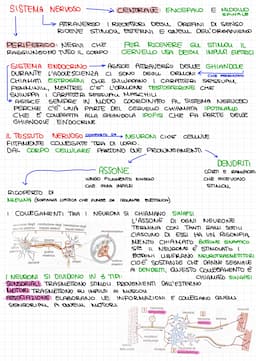 SISTEMA NERVOSO
CENTRALE ENCEFALO E MIDOLLO
SPINALE
ATTRAVERSO I RECETTORI DEGLI ORGANI DI SENSO
RICEVE STIMOLI ESTERNI E QUELLI DELL'ORGANISMO
PERIFERICO NERVI CHE
RAGGIUNGONO TUTTO IL CORPO
PER RICEVERE GLI STIMOLI IL
CERVELLO USA DEGLI IMPULSI ELETTRICI
SISTEMA ENDOCRINO AGISCE ATTRAVERSO DELLE GHIANDOLE
DURANTE L'ADOLESCENZA CI SONO DEGLI ORMONI
CHIAMATI ESTROGENI CHE SVILUPPANO I CARATTERI SESSUALI
FEMMINILI, MENTRE C'E' L'ORMONE TESTOSTERONE CHE
SVILUPPA I CARATTERI SESSUALI MASCHILI
AGISCE SEMPRE IN MODO COORDINATO AL SISTEMA NERVOSO
PERCHE C'E' UNA PARTE DEL CERVELLO CHIAMATA IPOTALAMO
CHE E' COLLEGATA ALLA GHIANDOLA IPOFISI CHE FA PARTE DELLE
GHIANDOLE ENDOCRINE
IL TESSUTO NERVOSO COMPOSTO DA NEURONI CIOE' CELLULE
FITTAMENTE COLLEGATE TRA DI LORO.
DAL CORPO CELLULARE PARTONO DEI PROLUNGAMENTI
ASSONE
LUNGO FILAMENTO
DENDRITI
CORTI E RAMIFICATI
CHE RICEVONO
STIMOLI
RICOPERTO DI
MIELINA
I COLLEGAMENTI TRA I NEURONI SI CHIAMANO SINAPSI
L'ASSONE DI OGNI NEURONE
TERMINA CON TANTI RAMI SOTTILI
CIASCUNO DI ESSI HA UN RIGONFIA
MENTO CHIAMATO BOTTONE SINAPTICO
SE IL NEURONE E' STIMOLATO, I
BOTTONI LIBERANO NEUROTRASMETTITORI
CIOE' SOSTANZE CHE DANNO SEGNALE
AI DENDRITI, QUESTO COLLEGAMENTO E'
CHIAMATO SINAPSI
I NEURONI SI DIVIDONO IN 3 TIPI:
SENSORIALI TRASMETTONO STIMOLI PROVENIENTI DALL'ESTERNO
MOTORI TRASMETTONO GLI IMPULSI AI MUSCOLI
ASSOCIAZIONE ELABORANO LE INFORMAZIONI E COLLEGANO QUELLI
SENSORIALI A QUELLI MOTORI